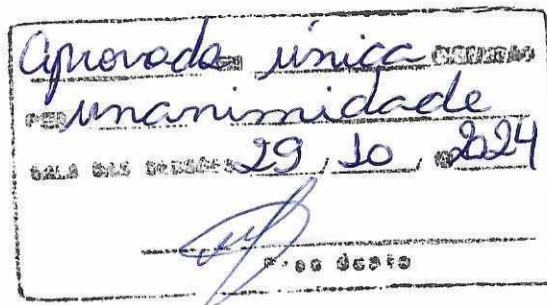 Aprovada em única discussão
por unanimidade
SALA DAS SESSÕES 29 / 10 / 2024
Presidente